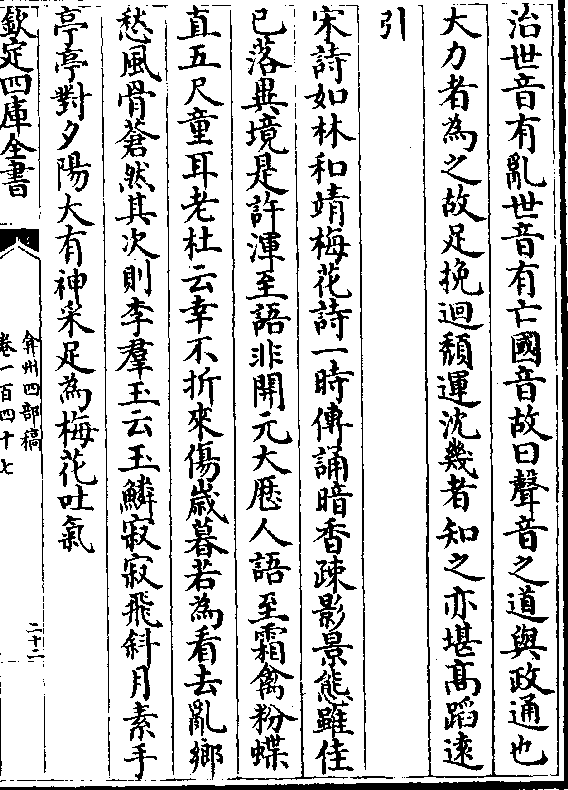 治世音有亂世音有亡國音故曰聲音之道與政通也
大力者為之故足挽迴頽運沈幾者知之亦堪髙蹈逺
引
宋詩如林和靖梅花詩一時傳誦暗香疎影景態雖佳
已落異境是許渾至語非開元大厯人語至霜禽粉蝶
直五尺童耳老杜云幸不折來傷嵗暮若為看去亂鄉
愁風骨蒼然其次則李羣玉云玉鱗寂寂飛斜月素手
亭亭對夕陽大有神采足為梅花吐氣
欽定四庫全書
弇州四部稿
卷一百四十七
二十二